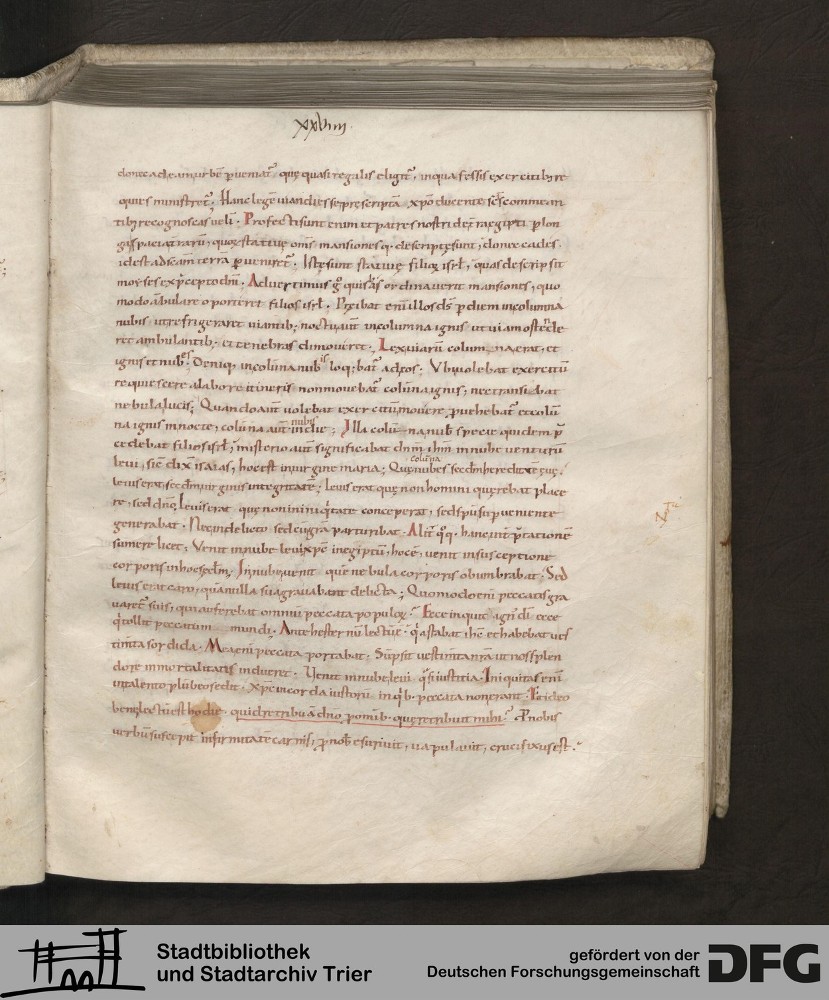 xxviiii
donec ad eam urbē ꝑueniat᷑ que quasi regalis eligit᷑, in qua fessis exercitib; re
quies ministret᷑. Hanc legē uiandi esse prescriptā xp̄o ducente sc̄s commean
tib; recognoscas ueli. Profecti sunt enim et patres nostri de t̄ra egipti ꝑ lon
ga spacia t̄rarū, quę statiuę om̄s mansionesq; descriptę sunt, donec cades.
idest ad sc̄am terrā ꝑueniret᷑. Istę sunt statiuę filioꝝ isrł, quas descripsit
moyses ex p̄cepto dn̄i. Aduertimus g̊ quis has ordinauerit mansiones, quo
modo ābulare oporteret filios isrł. Preibat eni illos ds̄ ꝑ diem in columna
nubis ut refrigeraret uiantib; noctu aut̄ in columna ignis ut uiam ostenderet
ret ambulantib; et tenebras dimoueret. Lex uiarū columna erat, et
ignis et nubes. Deniq; in colūna nubis loq;bat᷑ ad eos; Vbi uolebat exercitū
requiescere a labore itineris non mouebat᷑ colūna ignis, nec transibat
nebula lucis; Quando aut̄ uolebat exercitū mouere, ꝓuehebat᷑ et colū
na ignis in nocte, colūna aut̄ nubis in die; Illa colūna nubis specie quidem p̄
cedebat filios isrł, misterio aut̄ significabat dn̄m ih̄m in nube uenturū
leui, sic dix̄ isaias, hoc est in uirgine maria; Que nubes sc̄dm hereditatē euę.
leuis erat sc̄dm uirginis integritatē; leuis erat quę non homini querebat place
re, sed dn̄o; Leuis erat quę non in iniq̄tate conceperat, sed sp̄u sc̄o ꝑueniente
generabat. Nec in delicto sed cū gr̄a parturibat. Alit᷑ q̊q; hanc int᷑p̄tationē
sumere licet; Venit in nube leui xp̄c in egiptū, hoc ē, uenit in susceptione
corporis in hoc sc̄dm; In nube uenit quę nebula corporis obumbrabat. Sed
leuis erat caro, quā nulla sua grauabant delicta; Quomodo eni peccatis gra
uaret᷑ suis, qui auferebat omnium peccata populoꝝ? Ecce inquit agn᷒ dī ecce
q̇ tollit peccatum mundi. Ante hest᷑nū lectū ē q̇ astabat ih̄c et habebat ues
timta sordida. Mea eni peccata portabat. Sūpsit uestimta mea ut nos splen
dore inmortalitatis indueret. Venit in nube leui q̇si iustitia. Iniquitas eni
in talento plūbeo sedit. Xp̄c in corda iustorū in q̇b; peccata non erant. Et ideo
bene lectū est hodie. quid retribuā dn̄o p̄ omib; que retribuit mihi? Ꝓ nobis
uerbū suscepit infirmitatē carnis, ꝓ nob̄ esuriuit, uapulauit, crucifixus est.
Stadtbibliothek
und Stadtarchiv Trier
gefördert von der
Deutschen Forschungsgemeinschaft
DFG